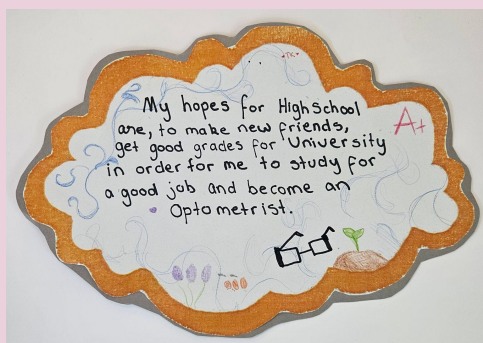 My hopes for Highschool
are, to make new friends,
get good grades for University
in order for me to study for
a good job and become an
Optometrist.
A+